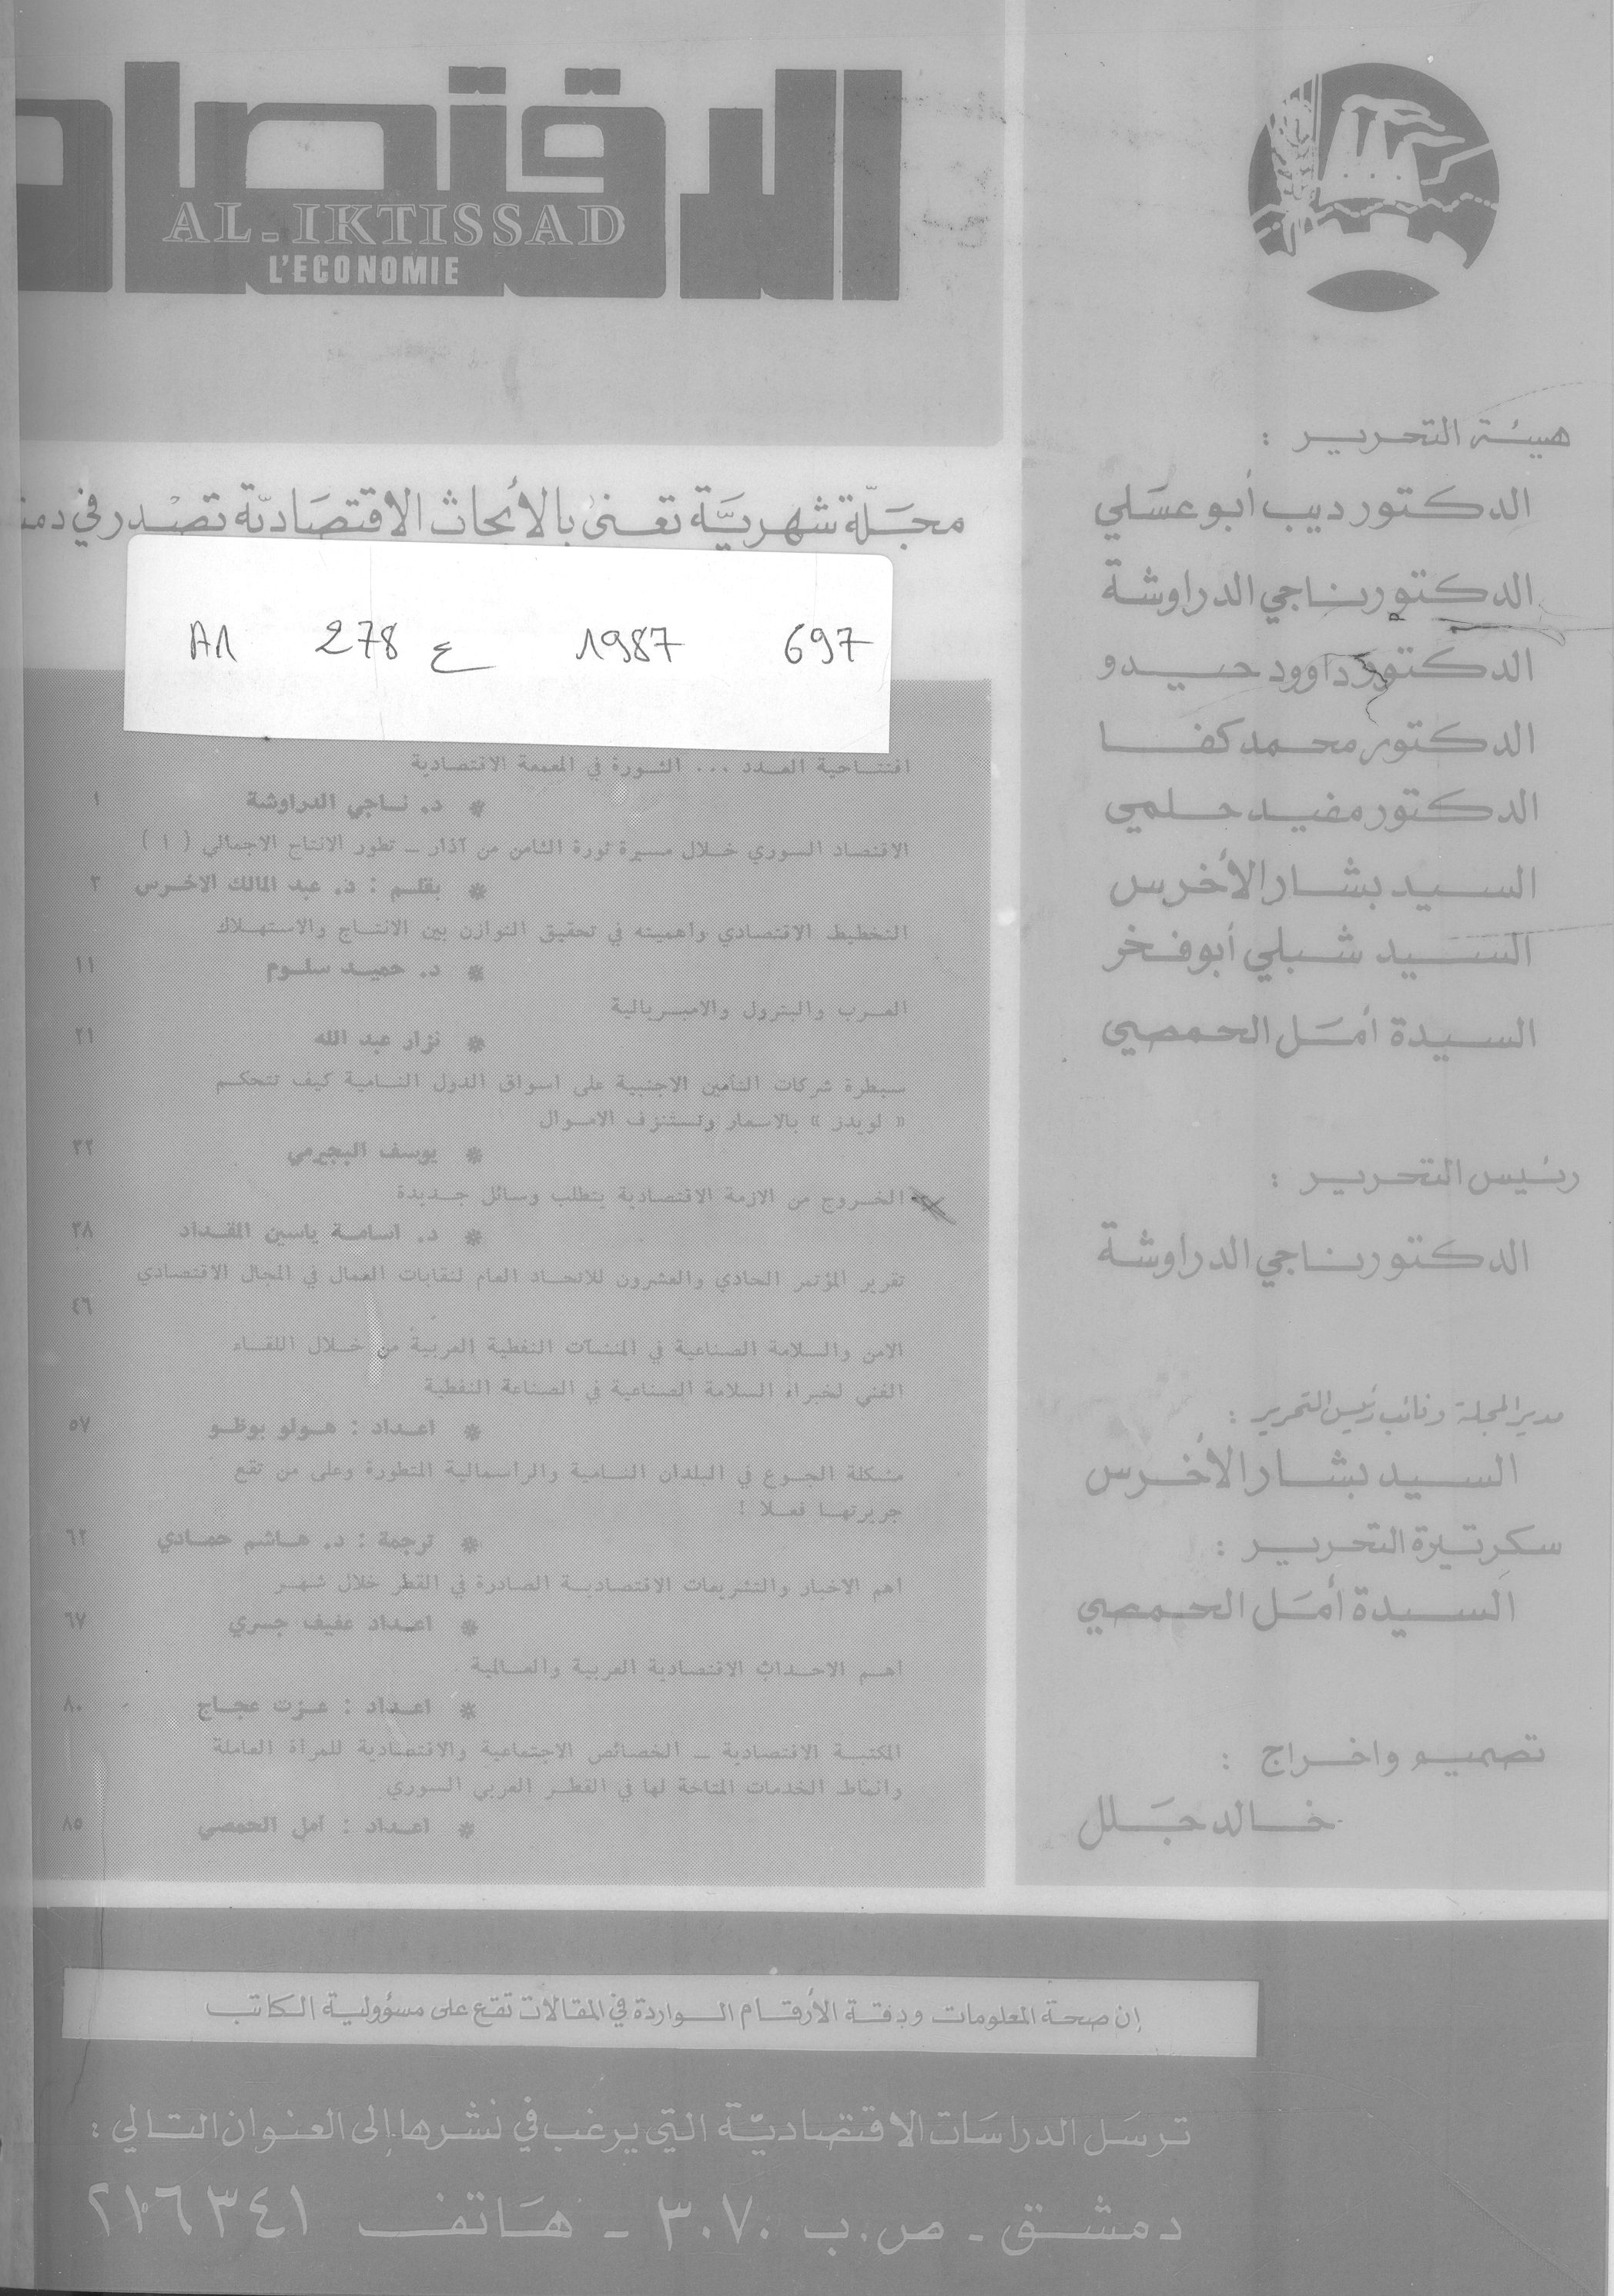 الاقتصاد
AL-IKTISSAD
L'ECONOMIE
مجلة شهرية تعنى بالأبحاث الاقتصادية تصدر في دمش
A1 278 ع 1987 697
هيئة التحرير :
الدكتور ديب أبو عسلي
الدكتور ناجي الدراوشة
الدكتور داوود حيدو
الدكتور محمد كفا
الدكتور مفيد حلمي
السيد بشار الأخرس
السيد شبلي أبو فخر
السيدة أمل الحمصي
رئيس التحرير :
الدكتور ناجي الدراوشة
مدير المجلة ونائب رئيس التحرير :
السيد بشار الأخرس
سكرتيرة التحرير :
السيدة أمل الحمصي
تصميم واخراج :
خالد جلل
افتتاحية العدد ... الثورة في المعمعة الاقتصادية
* د. ناجي الدراوشة ١
الاقتصاد السوري خلال مسيرة ثورة الثامن من آذار ــ تطور الانتاج الاجمالي ( ١ )
* بقلم : د. عبد المالك الاخرس ٣
التخطيط الاقتصادي واهميته في تحقيق التوازن بين الانتاج والاستهلاك
* د. حميد سلوم ١١
العرب والبترول والامبريالية
* نزار عبد الله ٢١
سيطرة شركات التأمين الاجنبية على اسواق الدول النامية كيف تتحكم
« لويدز » بالاسعار وتستنزف الاموال
* يوسف البجيرمي ٣٢
الخروج من الازمة الاقتصادية يتطلب وسائل جديدة
* د. اسامة ياسين المقداد ٣٨
تقرير المؤتمر الحادي والعشرون للاتحاد العام لنقابات العمال في المجال الاقتصادي
٤٦
الامن والسلامة الصناعية في المنشآت النفطية العربية من خلال اللقاء
الفني لخبراء السلامة الصناعية في الصناعة النفطية
* اعداد : هولو بوظو ٥٧
مشكلة الجوع في البلدان النامية والراسمالية المتطورة وعلى من تقع
جريرتها فعلا !
* ترجمة : د. هاشم حمادي ٦٢
اهم الاخبار والتشريعات الاقتصادية الصادرة في القطر خلال شهر
* اعداد عفيف جسري ٦٧
اهم الاحداث الاقتصادية العربية والعالمية
* اعداد : عزت عجاج ٨٠
المكتبة الاقتصادية ــ الخصائص الاجتماعية والاقتصادية للمرأة العاملة
وانماط الخدمات المتاحة لها في القطر العربي السوري
* اعداد : امل الحمصي ٨٥
إن صحة المعلومات ودقة الأرقام الواردة في المقالات تقع على مسؤولية الكاتب
ترسل الدراسات الاقتصادية التي يرغب في نشرها إلى العنوان التالي :
دمشق - ص.ب ٣٠٧٠ - هاتف ٢١٦٣٤١